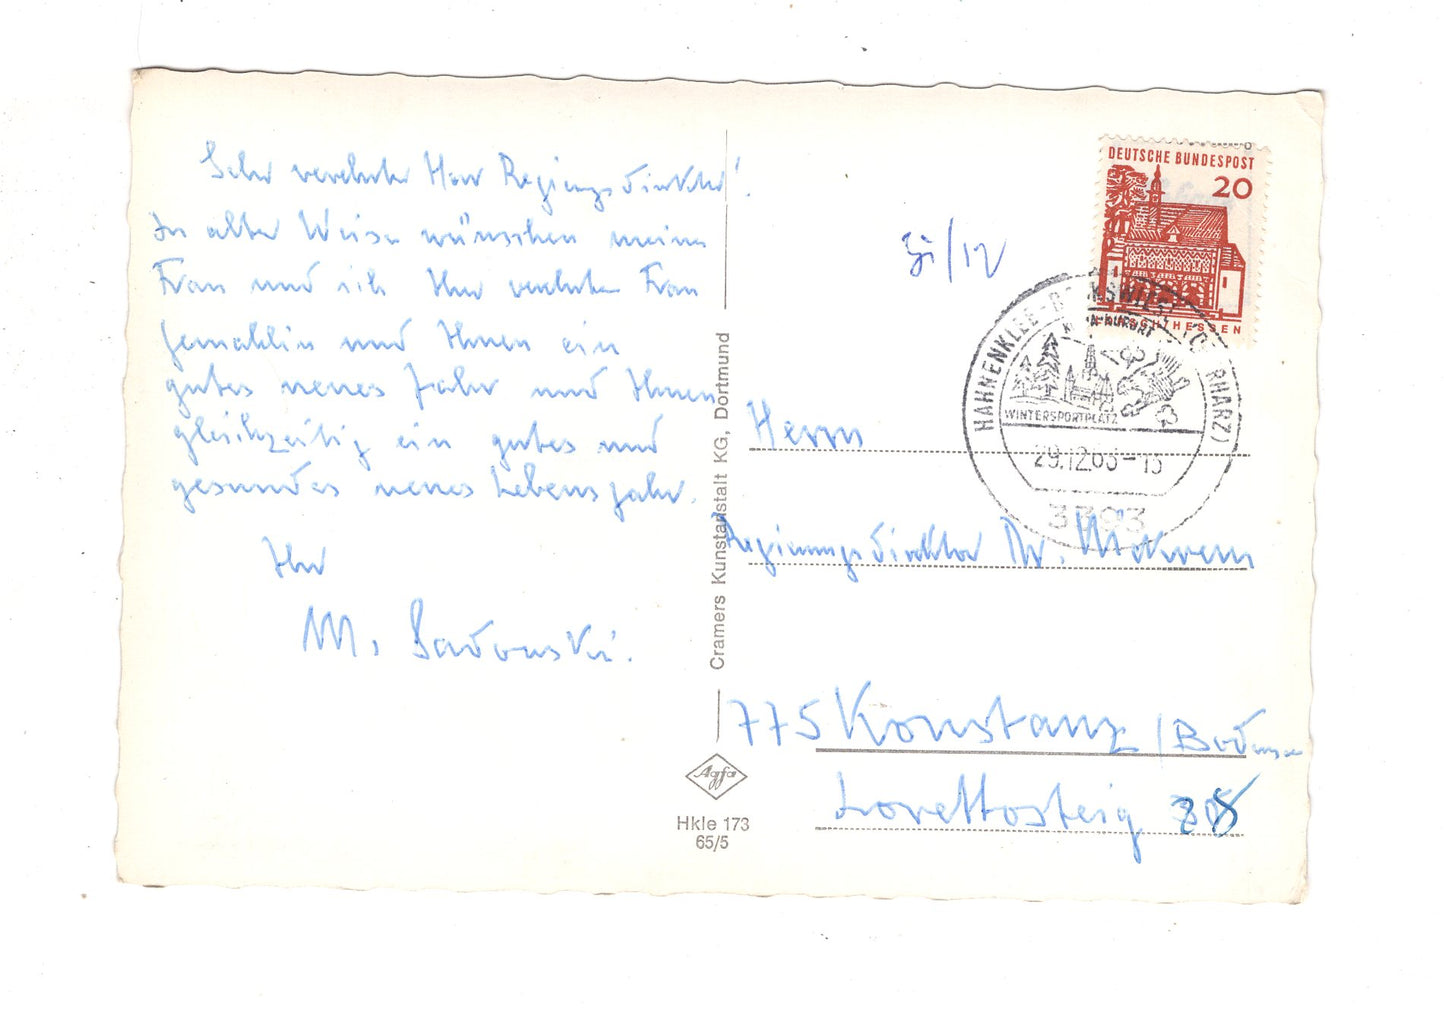 Sehr verehrter Herr Regierungsdirektor!
In alter Weise wünschen meine
Frau und ich Ihrer verehrten Frau
Gemahlin und Ihnen ein
gutes neues Jahr und Ihnen
gleichzeitig ein gutes und
gesundes neues Lebensjahr.
Ihr
M. Sadowski.
Cramers Kunstanstalt KG, Dortmund
Agfa
Hkle 173
65/5
/12
DEUTSCHE BUNDESPOST
20
HESSEN
HAHNENKLEE-
WINTERSPORTPLATZ
3393
Herrn
Regierungsdirektor Dr.
775 Konstanz / Bodensee
Lorettosteig